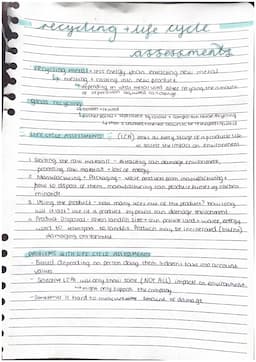 recycling + life cycle
assessments
recycling metal • less energy than extracting new metal
↳ melting + casting into new product
↳ depending on what metal used after recycling, the amount
of separation required will change
glass recycling
LIFE CYCLE ASSESSMENTS (LCA) look at every stage of a product's life
to assess the impact on environment
1. Getting the raw material - extracting can damage environment,
processing raw material = lots of energy
2. Manufacturing + Packaging - waste products from manufacturing +
how to dispose of them, manufacturing can produce fumes eg carbon
monoxide
3. Using the product - how many uses out of the product? how long
will it last? use of a product may damage environment
4. Product Disposal - takes landfill sites = take up land + water, energy
used to transport to landfill. Products may be incinerated (burnt)
damaging environment
PROBLEMS WITH LIFE CYCLE ASSESSMENTS
- Biased depending on person doing them + doesn't take into account
values
- Selective LCAs will only show some (NOT ALL) impacts on environment
→ might only support the company
- Sometimes is hard to measure amount of damage